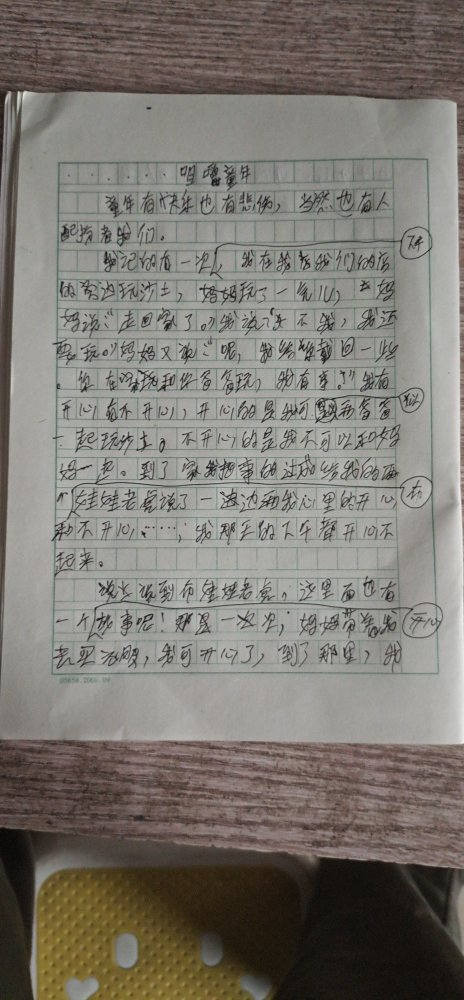 咀嚼童年
童年有快乐也有悲伤，当然也有人
陪着我们。
我记的有一次，我在我家我们的店
的旁边玩沙土，妈妈玩了一会儿，妈
妈说：“走回家了。”我说：“不，我还
要玩。”妈妈又说：“呢，我给回一些
。你在家玩和爸爸玩，我有事。”我有
开心有不开心，开心的是我可和爸爸
一起玩沙土。不开心的是我不可以和妈
妈一起。到了家我把事的过成给我的
个娃娃老虎说了一边边和我心里的开心
和不开心，……，我那天的下午都开心不
起来。
说到布娃娃老虎，这里面也有
一个故事呢！那是一次，妈妈带着我
去买衣服，我可开心了，到了那里，我
开心
05656.2006.09